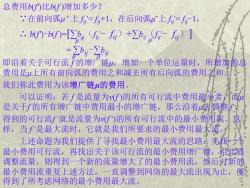 总费用b(f′)比b(f)增加多少?
∵在前向弧μ⁺上fᵢⱼ′=fᵢⱼ+1, 在后向弧μ⁻上fᵢⱼ′=fᵢⱼ-1,
∴ b(f′)-b(f)=[∑bᵢⱼ(fᵢⱼ′-fᵢⱼ)+∑bᵢⱼ(fᵢⱼ′-fᵢⱼ)]
=∑bᵢⱼ-∑bᵢⱼ
即沿着关于可行流f的增广链μ, 增加一个单位运量时, 所增加的总
费用是μ上所有前向弧的费用之和减去所有后向弧的费用之和。
我们称此费用为该增广链μ的费用。
可以证明: 若f是流量为v(f)的所有可行流中费用最小者, 而μ
是关于f的所有增广链中费用最小的增广链, 那么沿着μ去调整f,
得到的可行流f′就是流量为v(f′)的所有可行流中的最小费用流。这
样, 当f′是最大流时, 它就是我们所要求的最小费用最大流。
上述命题为我们提供了寻找最小费用最大流的思路:先找一个
最小费用可行流, 再找出关于该可行流的最小费用增广链, 沿此链
调整流量, 则得到一个新的流量增大了的最小费用流, 然后对新的
最小费用流重复上述方法, 一直调整到网络的最大流出现为止, 便
得到了所考虑网络的最小费用最大流。